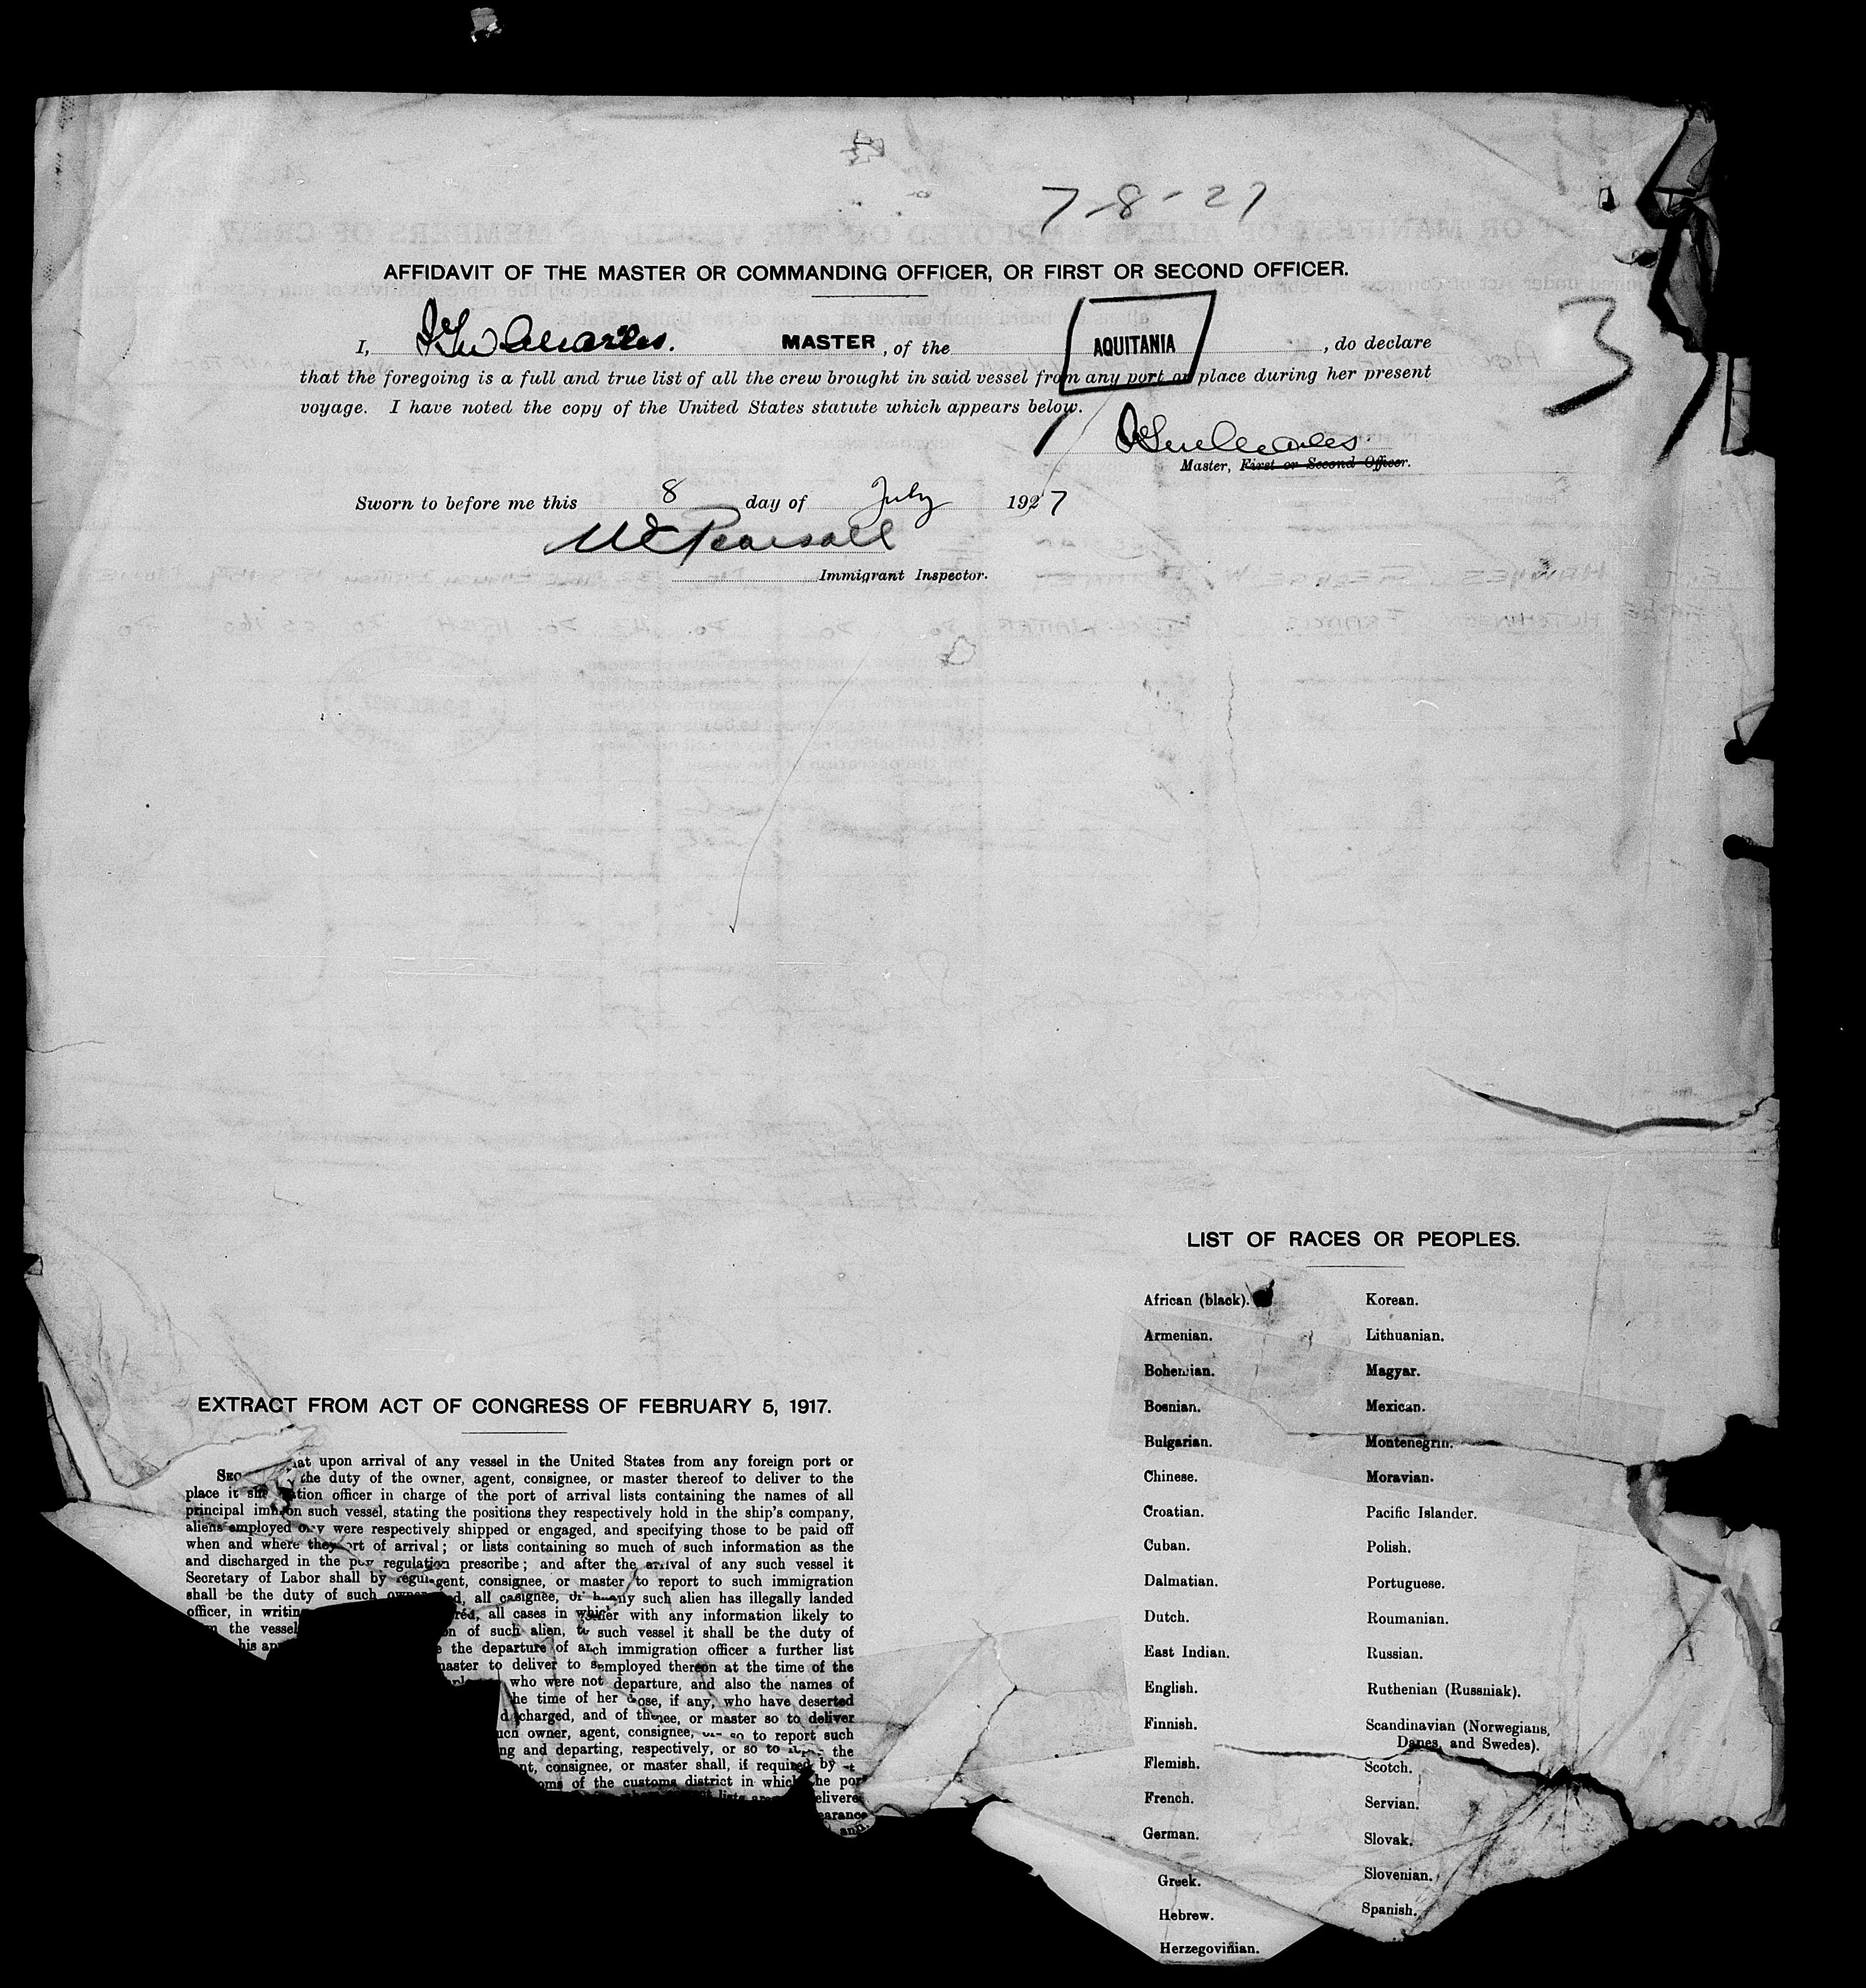 7-8-27
AFFIDAVIT OF THE MASTER OR COMMANDING OFFICER, OR FIRST OR SECOND OFFICER.
3
I, Charles. MASTER, of the AQUITANIA, do declare
that the foregoing is a full and true list of all the crew brought in said vessel from any port or place during her present
voyage. I have noted the copy of the United States statute which appears below.
Charles
Master, First or Second Officer.
Sworn to before me this 8 day of July 1927
Pearsall
Immigrant Inspector.
LIST OF RACES OR PEOPLES.
African (black). Korean.
Armenian. Lithuanian.
Bohemian. Magyar.
Bosnian. Mexican.
Bulgarian. Montenegrin.
Chinese. Moravian.
Croatian. Pacific Islander.
Cuban. Polish.
Dalmatian. Portuguese.
Dutch. Roumanian.
East Indian. Russian.
English. Ruthenian (Russniak).
Finnish. Scandinavian (Norwegians,
Danes, and Swedes).
Flemish. Scotch.
French. Servian.
German. Slovak.
Greek. Slovenian.
Hebrew. Spanish.
Herzegovinian.
EXTRACT FROM ACT OF CONGRESS OF FEBRUARY 5, 1917.
upon arrival of any vessel in the United States from any foreign port or
the duty of the owner, agent, consignee, or master thereof to deliver to the
place officer in charge of the port of arrival lists containing the names of all
principal such vessel, stating the positions they respectively hold in the ship's company,
aliens employed were respectively shipped or engaged, and specifying those to be paid off
when and where they of arrival; or lists containing so much of such information as the
and discharged in the regulation prescribe; and after the arrival of any such vessel it
Secretary of Labor shall by consignee, or master to report to such immigration
shall be the duty of such all any such alien has illegally landed
officer, in all cases in with any information likely to
the vessel of such alien, such vessel it shall be the duty of
the departure of immigration officer a further list
to deliver to employed thereon at the time of the
who were not departure, and also the names of
time of her if any, who have deserted
and of or master so to deliver
owner, agent, consignee, so to report such
and departing, respectively, or so to the
consignee, or master shall, if required by
of the customs district in which